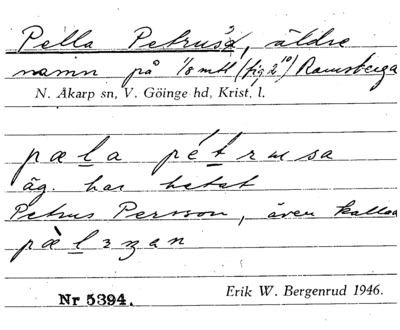 Pella Petrusa, äldre
namn på 1/8 mtl (fig 2¹⁰) Ramsberga
N. Åkarp sn, V. Göinge hd, Krist. l.
pæla pétrusa
äg. har hetat
Petrus Persson, även kallad
pæ̀lɜzan
Nr 5394.
Erik W. Bergenrud 1946.